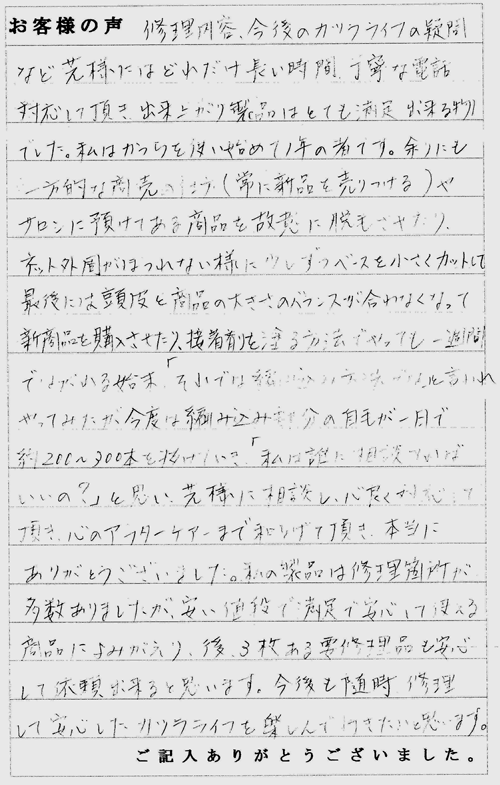 お客様の声 修理内容、今後のカツラライフの疑問
など 様にはどれだけ長い時間、丁寧な電話
対応して頂き、出来上がり製品はとても満足出来る物
でした。私はかつらを使い始めて1年の者です。余りにも
一方的な商売の (常に新品を売りつける)や
サロンに預けてある商品を故意に脱毛させたり、
ネット外周がほつれない様に少しずつベースを小さくカットして
最後には頭皮と商品の大きさのバランスが合わなくなって
新商品を購入させたり、接着剤を塗る方法でやっても一週間
ではがれる始末「それでは編み込み 言われ
やってみたが今度は編み込み部分の自毛が一日で
約200〜300本も抜けていき「私は誰に相談すれば
いいの?」と思い、 様に相談し、心良く対応して
頂き、心のアフターケアーまで和らげて頂き、本当に
ありがとうございました。私の製品は修理箇所が
多数ありましたが、安い値段で満足で安心して使える
商品によみがえり、後、3枚ある要修理品も安心
して依頼出来ると思います。今後も随時修理
して安心したカツラライフを楽しんで行きたいと思います。
ご記入ありがとうございました。